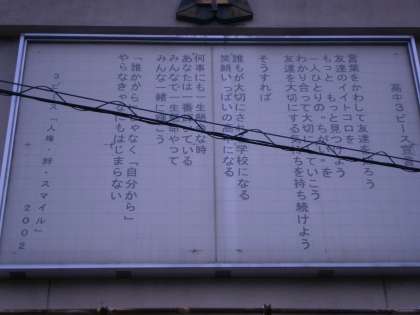 高中ピース宣言
言葉をかわして友達になろう
友達のイイトコロを
もっと もっと見つけよう
一人ひとりの"ちがい"を
わかり合って大切にしていこう
友達を大切にする気持ちを持ち続けよう
そうすれば
誰もが大切にされる学校になる
笑顔いっぱいの高中になる
何事にも一生懸命な時
あなたは一番輝いている
みんなで一生懸命やって
みんな一緒に輝こう
「誰かから」じゃなく「自分から」
やらなきゃなにもはじまらない
3ピース「人権・絆・スマイル」
2002